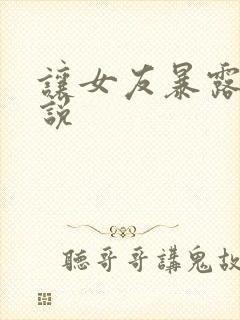 讓女友暴露
說
聽哥哥講鬼故